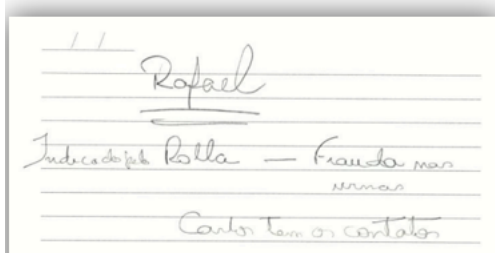 Rafael
Indicado pelo Rolla — Fraude nas
urnas
Carlos tem os contatos